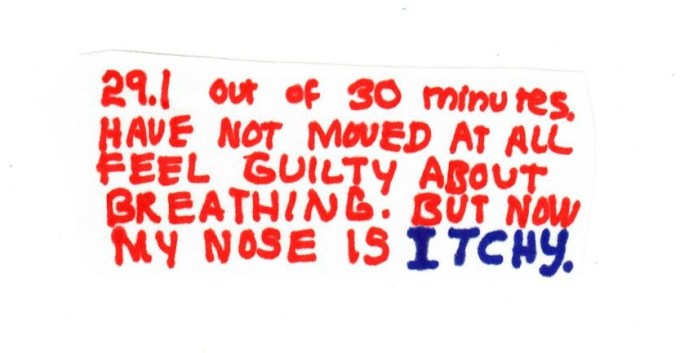 29.1 out of 30 minutes.
HAVE NOT MOVED AT ALL
FEEL GUILTY ABOUT
BREATHING. BUT NOW
MY NOSE IS ITCHY.